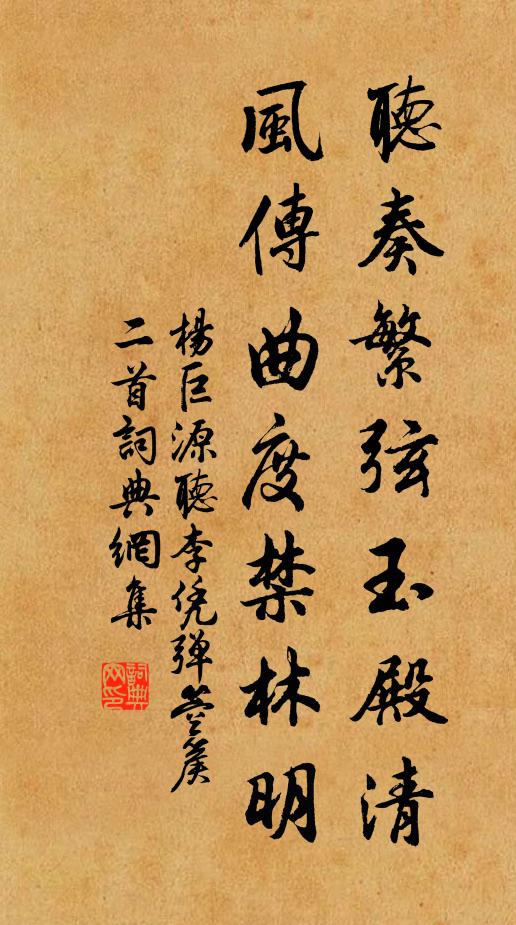 聽奏繁弦玉殿清
風傳曲度禁林明
楊巨源聽李凭彈箜篌
二首詞典網集
詞典网印